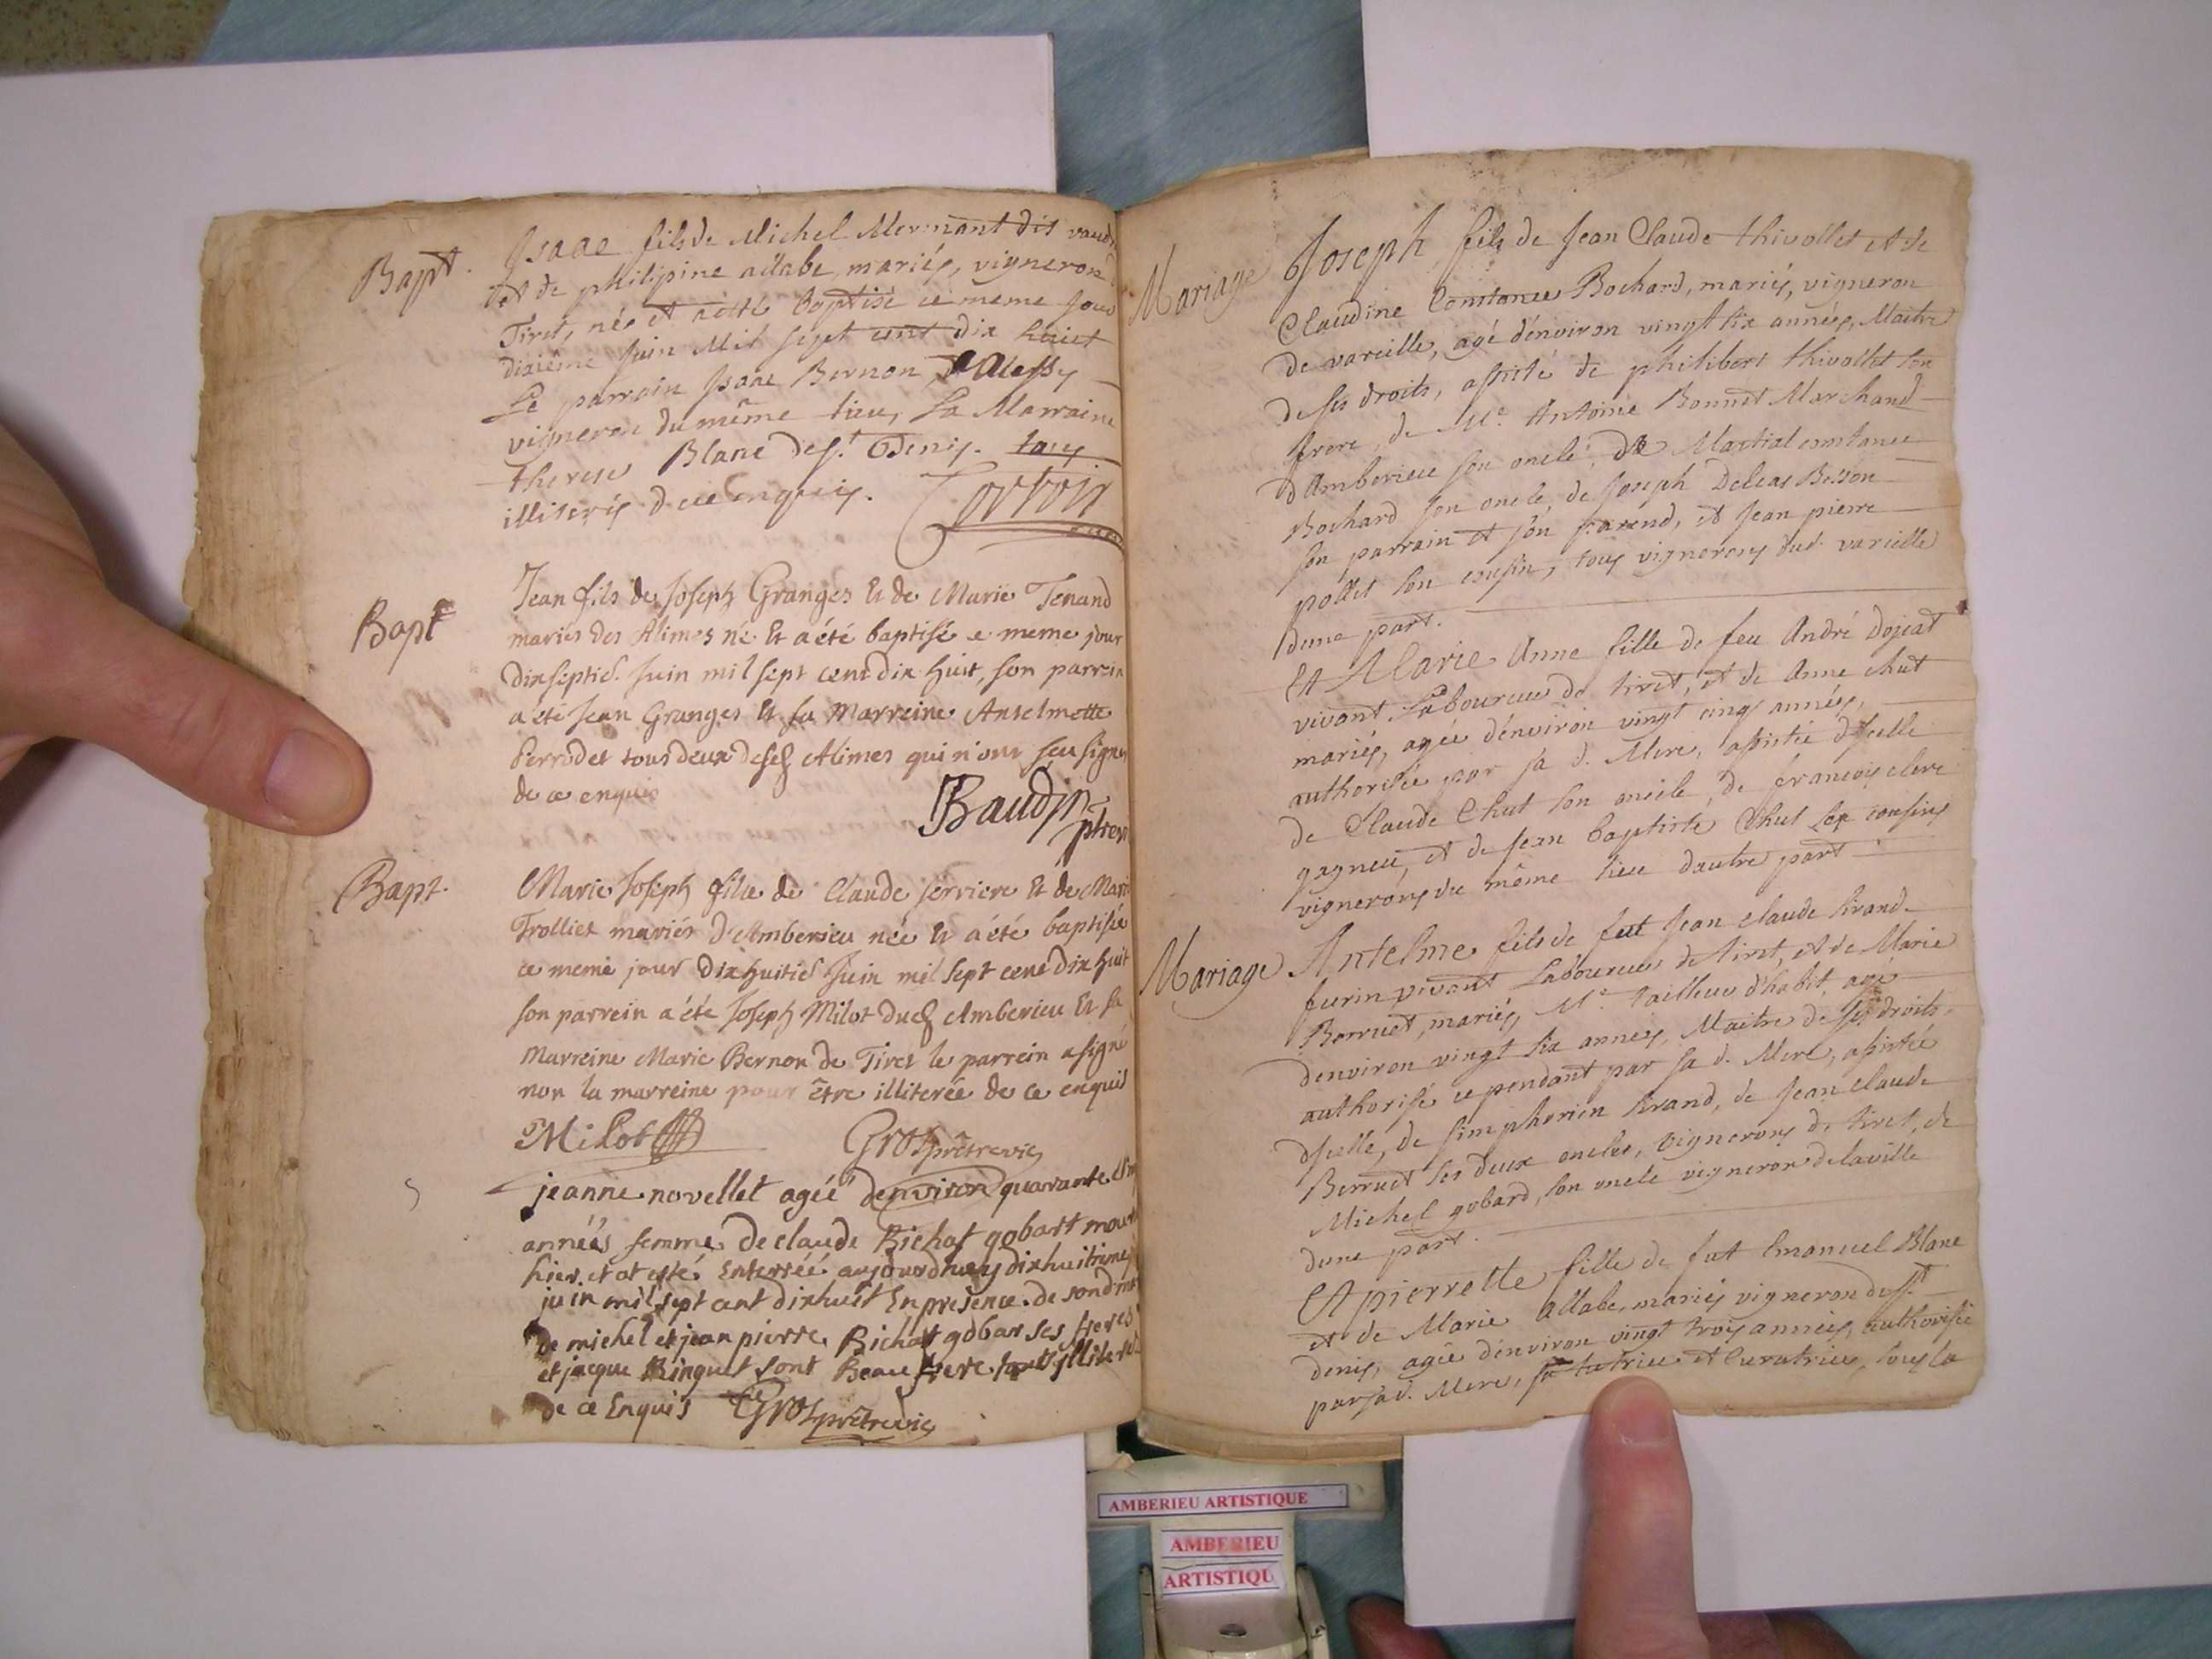 Bapt.
Isaac fils de Michel Mermant dit
et de philipine allabe, mariés, vigneron
Tiret, nés et a été baptisé ce meme Jour
dixième Juin Mil sept cent dix huict
Le parrain Isaac Bernon,
vigneron du même lieu, La Marraine
therese Blanc de st. Denis. tous
illiterés de ce enquis.
Bapt
Jean fils de Joseph Granges Et de Marie Tenand
mariés des Alimes né Et a été baptisé ce meme jour
dixseptie. Juin mil sept cent dix huit, son parrein
a été Jean Granges Et sa Marreine Anselmette
Perrodet tous deux desd Alimes qui n'ont sceu signer
de ce enquis
Baudin
ptre
Bapt.
Marie Joseph fille de Claude serriere Et de Marie
Trolliet mariés d'Amberieu née Et a été baptisée
ce meme jour dixhuitie Juin mil sept cent dix huit
son parrein a été Joseph Milot dud Amberieu Et sa
Marreine Marie Bernon de Tiret le parrein a signé
non la marreine pour être illiterée de ce enquis
Milot
Gros prêtre vic
jeanne novellet agéé denviron quarante
annéés femme de claude Richat gobart
hier et at esté Enterréé aujourdhuy dixhuitieme
juin mil sept cent dixhuit En presence de
de michel et jean pierre Richat gobar ses freres
et jacque Ringuet sont Beau frere
de ce Enquis Gros prêtre vic
Mariage
Joseph fils de Jean Claude thivollet et de
Claudine Constance Bochard, mariés, vigneron
de vareille, agé d'environ vingt six années, Maitre
de ses droits, assisté de philibert thivollet son
frere, de Me. Antoine Bonnet Marchand
d'Amberieu son oncle, de Martial constance
Bochard son oncle, de Joseph Deleas Besson
son parrain et son parend, et Jean pierre
pollet son cousin, tous vignerons dud. vareille
dune part.
Et Marie Anne fille de feu André Dojeat
vivant Laboureur de tiret, et de Anne Chut
mariés, agée d'environ vingt cinq années,
authorisée par sa d. Mere, assistée d'icelle
de Claude Chut son oncle, de francois clerc
gagneu, et de Jean baptiste Chut ses cousins
vignerons du même lieu dautre part
Mariage
Antelme fils de fut Jean claude tirand
furin vivant Laboureur de tiret, et de Marie
Borruet, mariés, Me tailleur d'habit, agé
denviron vingt six années, Maitre de ses droits,
authorisé cependant par sa d. Mere, assistée
d'icelle, de simphorien tirand, de Jean claude
Berruet ses deux oncles, vignerons de tiret, de
Michel gobard, son oncle vigneron de la ville
dune part.
Et pierrette fille de fut Emanuel Blanc
et de Marie allabe, mariés vigneron de st
denis, agée d'environ vingt trois années, authorisée
par sa d. Mere, sa tutrice et Curatrice, sous la
AMBERIEU ARTISTIQUE
AMBERIEU
ARTISTIQU